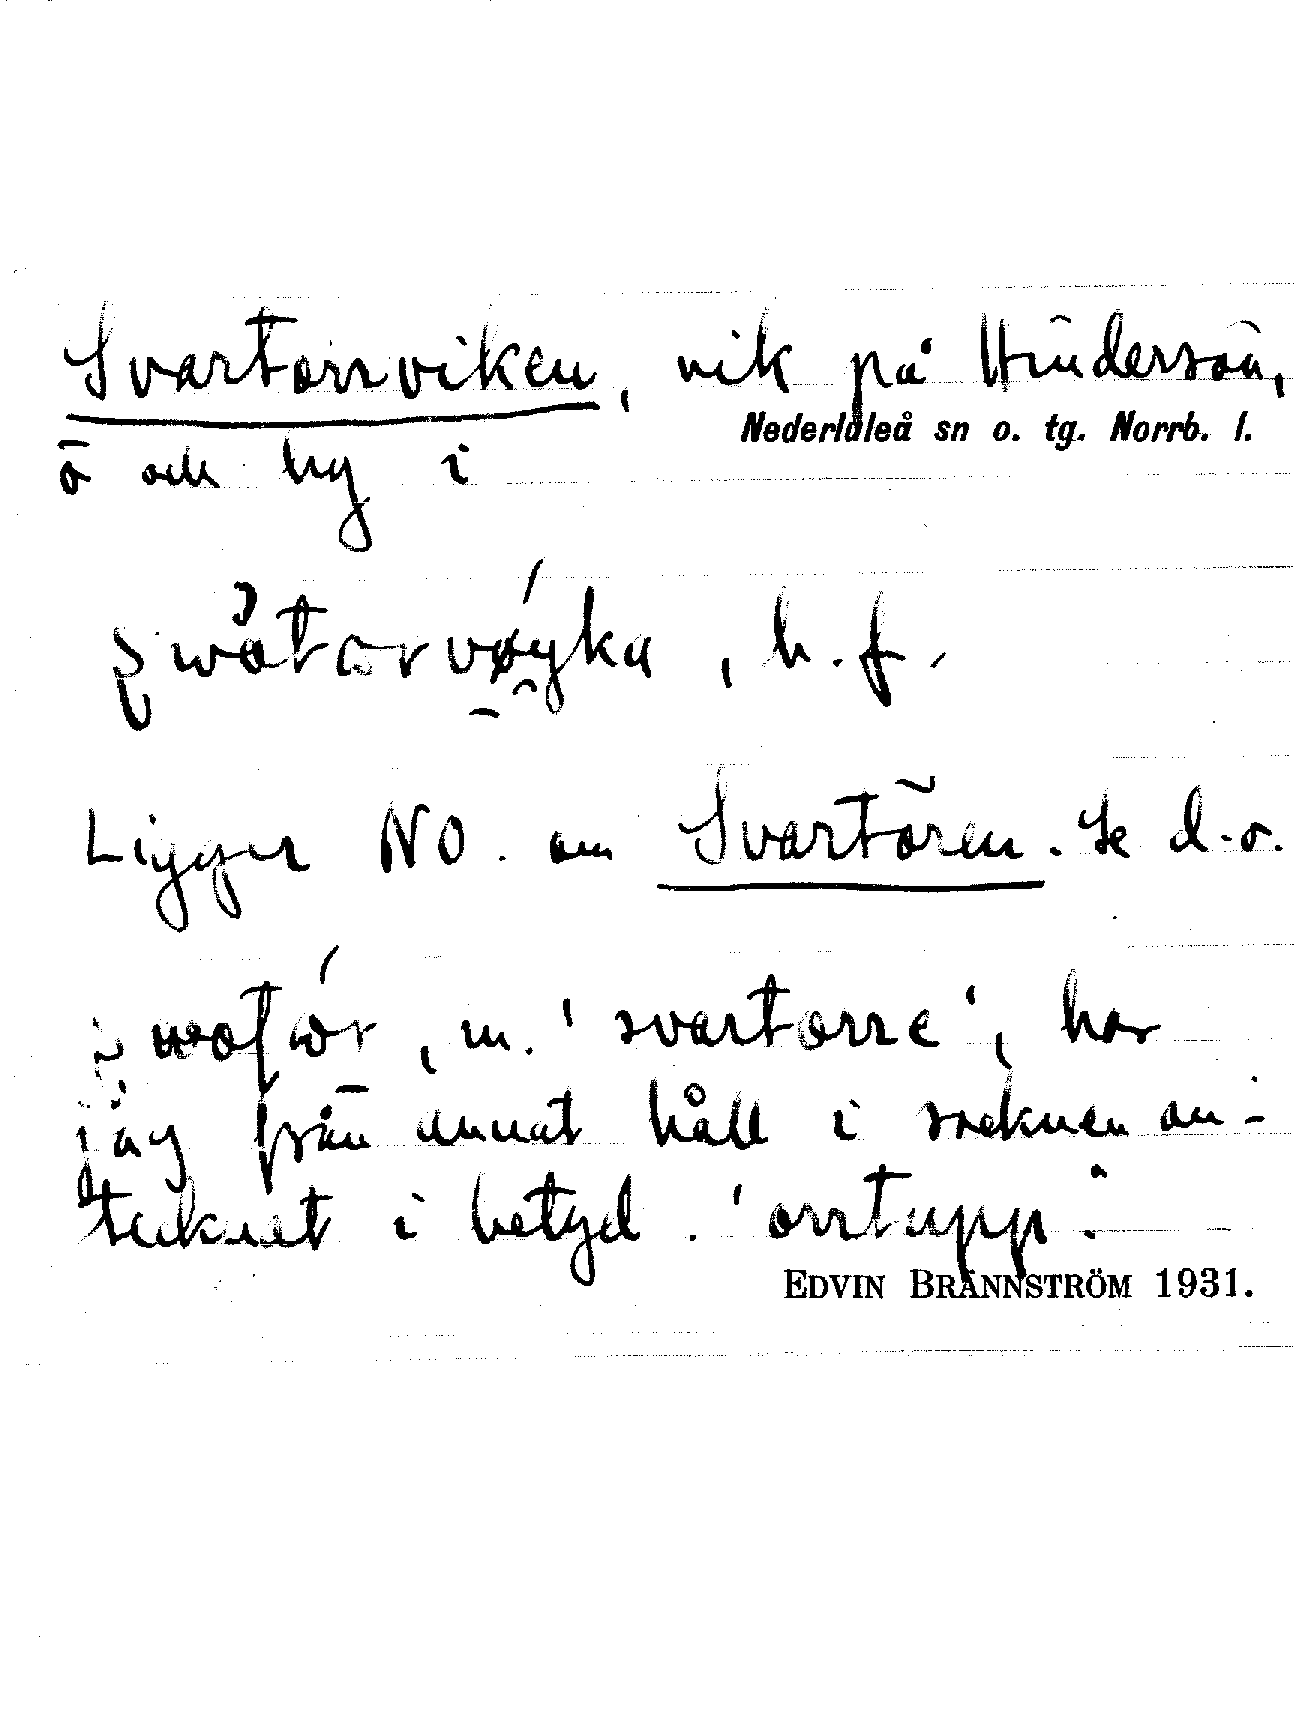 Svartorrviken, vik på Hindersön,
Nederluleå sn o. tg. Norrb. l.
ö och by i
, b. f.
Ligger NO. om Svartören. Se d.o.
, m. 'svartorre', har
jag från annat håll i socknen an-
tecknat i betyd. 'orrtupp'.
EDVIN BRÄNNSTRÖM 1931.